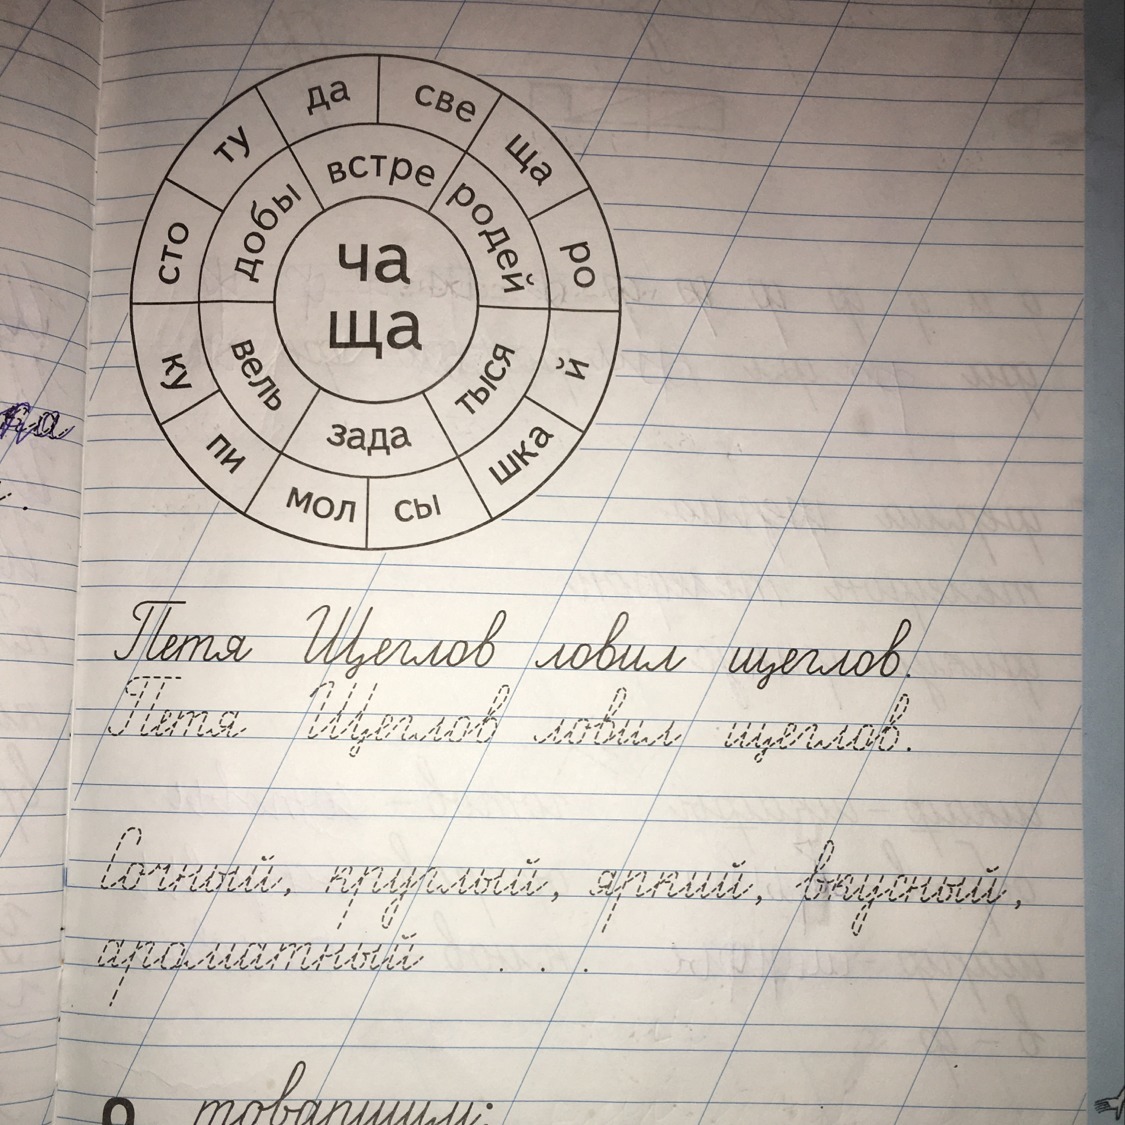 да
све
ща
ро
й
шка
сы
мол
пи
ку
сто
ту
встре
родей
тыся
зада
вель
добы
ча
ща
Петя Щеглов ловил щеглов.
Петя Щеглов ловил щеглов.
Сочный, круглый, яркий, вкусный,
ароматный ....